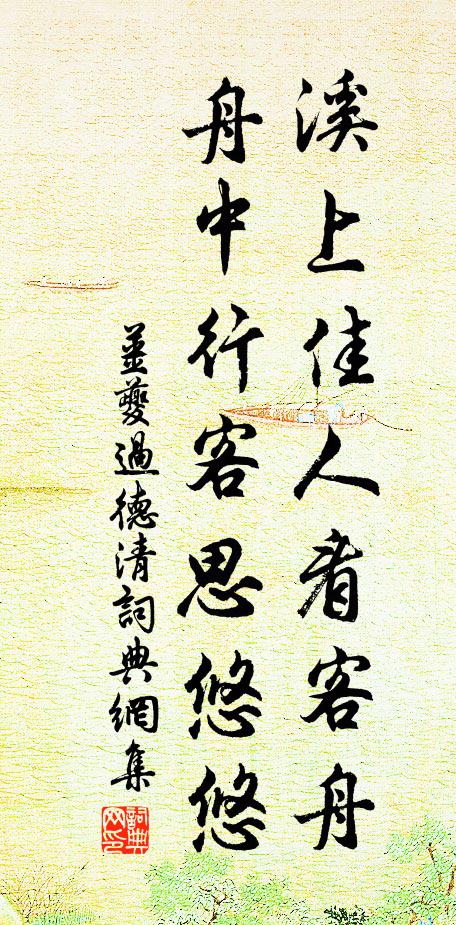 溪上佳人看客舟
舟中行客思悠悠
姜夔過德清詞典網集
詞典網印